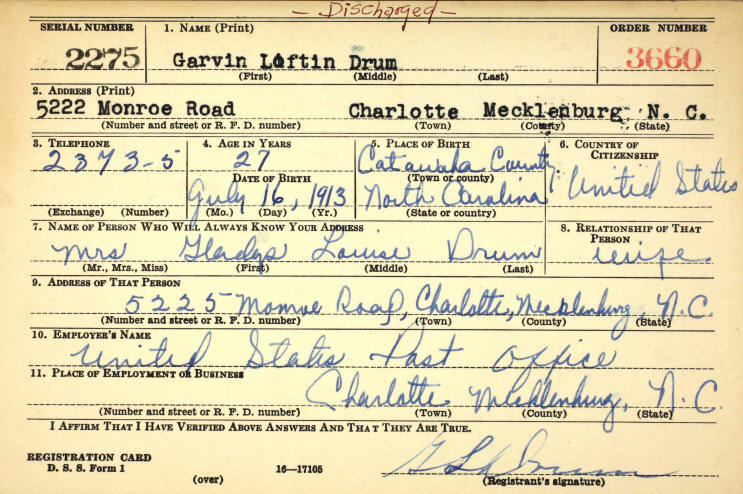 — Discharged —
SERIAL NUMBER 1. NAME (Print) ORDER NUMBER
2275 Garvin Loftin Drum 3660
(First) (Middle) (Last)
2. ADDRESS (Print)
5222 Monroe Road Charlotte Mecklenburg N. C.
(Number and street or R. F. D. number) (Town) (County) (State)
3. TELEPHONE 4. AGE IN YEARS 5. PLACE OF BIRTH 6. COUNTRY OF CITIZENSHIP
2373-5 27 Catawba County
DATE OF BIRTH (Town or county)
July 16, 1913 North Carolina United States
(Exchange) (Number) (Mo.) (Day) (Yr.) (State or country)
7. NAME OF PERSON WHO WILL ALWAYS KNOW YOUR ADDRESS 8. RELATIONSHIP OF THAT PERSON
Mrs Gladys Louise Drum wife
(Mr., Mrs., Miss) (First) (Middle) (Last)
9. ADDRESS OF THAT PERSON
5225 Monroe Road, Charlotte, Mecklenburg, N.C.
(Number and street or R. F. D. number) (Town) (County) (State)
10. EMPLOYER'S NAME
United States Post Office
11. PLACE OF EMPLOYMENT OR BUSINESS
Charlotte Mecklenburg, N.C.
(Number and street or R. F. D. number) (Town) (County) (State)
I AFFIRM THAT I HAVE VERIFIED ABOVE ANSWERS AND THAT THEY ARE TRUE.
REGISTRATION CARD
D. S. S. Form 1 16—17105
(over) (Registrant's signature)